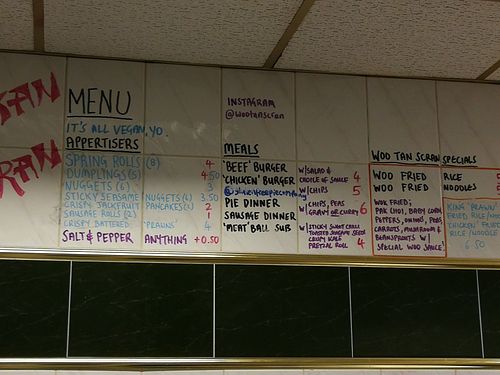 MENU
IT'S ALL VEGAN, YO.
APPERTISERS
SPRING ROLLS (8) 4
DUMPLINGS (5) 4.50
NUGGETS (6) 3
STICKY SEASAME NUGGETS (6) 3.50
CRISPY JACKFRUIT PANCAKES
SAUSAGE ROLLS (2)
CRISPY BATTERED 'PRAWNS' 4
SALT & PEPPER ANYTHING +0.50
INSTAGRAM
@wootanscran
MEALS
'BEEF' BURGER
'CHICKEN' BURGER
PIE DINNER
SAUSAGE DINNER
'MEAT' BALL SUB
W/ SALAD &
CHOICE OF SAUCE 4
W/ CHIPS 5
W/ CHIPS, PEAS
GRAVY OR CURRY 6
W/ STICKY SWEET CHILLI
TOASTED SEASAME SEEDS
CRISPY KALE
PRETZEL ROLL 4
WOO TAN SCRAN SPECIALS
WOO FRIED RICE 5
WOO FRIED NOODLES
WOK FRIED;
PAK CHOI, BABY CORN,
PEPPERS, ONIONS, PEAS
CARROTS, MUSHROOM &
BEANSPROUTS W/
SPECIAL WOO SAUCE
KING PRAWN
FRIED RICE/
CHICKEN
RICE/NOODLE
6.50